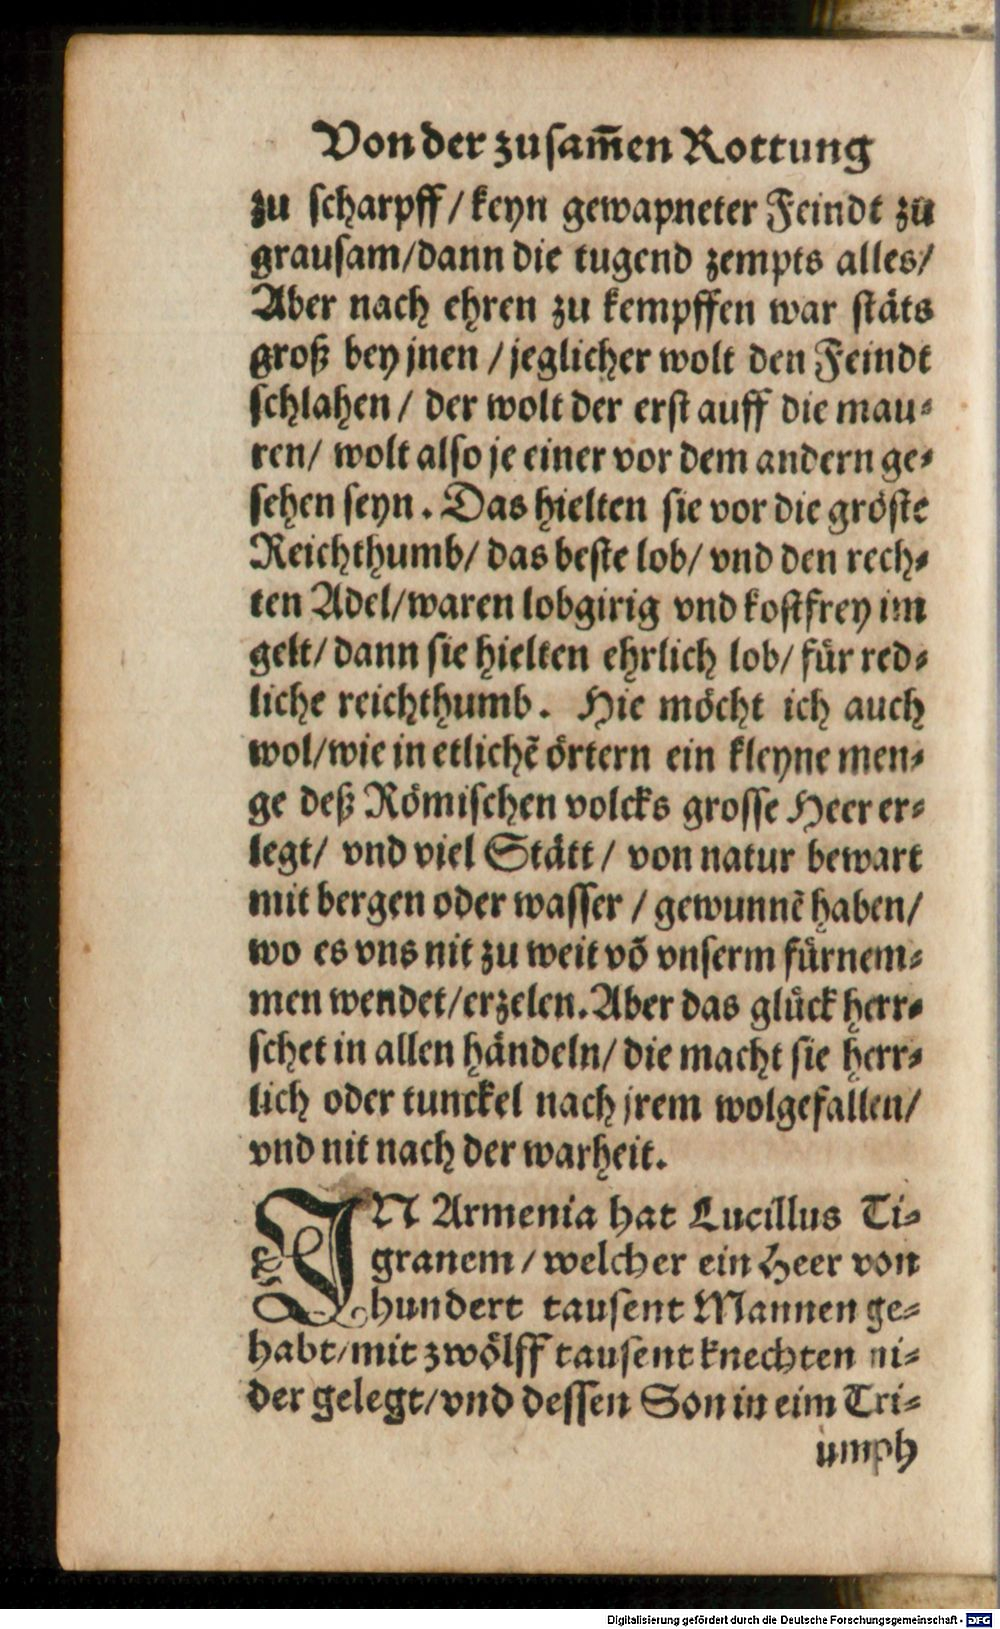 Von der zusam̄en Rottung
zu scharpff / keyn gewapneter Feindt zů
grausam/dann die tugend zempts alles/
Aber nach ehren zu kempffen war stäts
groß bey jnen / jeglicher wolt den Feindt
schlahen / der wolt der erst auff die mau⸗
ren/ wolt also je einer vor dem andern ge⸗
sehen seyn. Das hielten sie vor die gröste
Reichthumb/ das beste lob/ vnd den rech⸗
ten Adel/waren lobgirig vnd kostfrey im
gelt/ dann sie hielten ehrlich lob/ für red⸗
liche reichthumb. Hie möcht ich auch
wol/wie in etlichē örtern ein kleyne men⸗
ge deß Römischen volcks grosse Heer er⸗
legt/ vnd viel Stätt / von natur bewart
mit bergen oder wasser / gewunnē haben/
wo es vns nit zu weit vō vnserm fürnem⸗
men wendet/erzelen. Aber das glück herr⸗
schet in allen händeln/ die macht sie herr⸗
lich oder tunckel nach jrem wolgefallen/
vnd nit nach der warheit.
IN Armenia hat Lucillus Ti⸗
granem / welcher ein Heer von
hundert tausent Mannen ge⸗
habt/mit zwölff tausent knechten ni⸗
der gelegt/vnd dessen Son in eim Tri⸗
umph
Digitalisierung gefördert durch die Deutsche Forschungsgemeinschaft - DFG